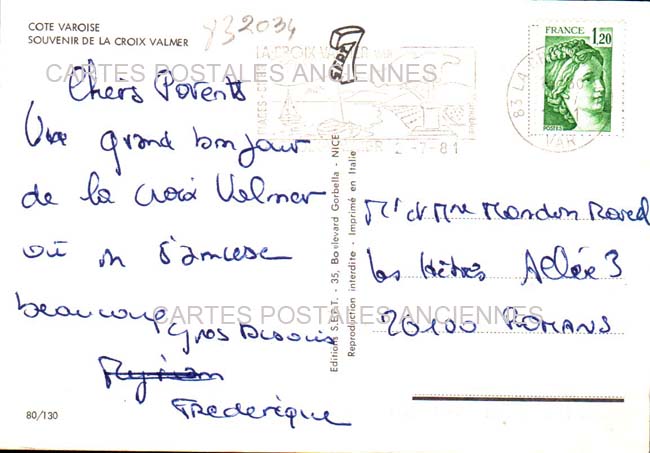 COTE VAROISE
SOUVENIR DE LA CROIX VALMER
832034
CARTES POSTALES ANCIENNES
Chers Parents
Un grand bonjour
de la Croix Valmer
où on s'amuse
beaucoup
Gros Bisous
Myriam
Frederique
80/130
Editions S.E.P.T. - 35, Boulevard Gorbella - NICE
Reproduction interdite - Imprimé en Italie
LA CROIX VALMER
2-7-81
FRANCE 1,20
POSTES
83 LA CROIX
VAR
Mr et Mme Mondon Raoul
Les Hêtres Allée 3
26100 ROMANS
CARTES POSTALES ANCIENNES